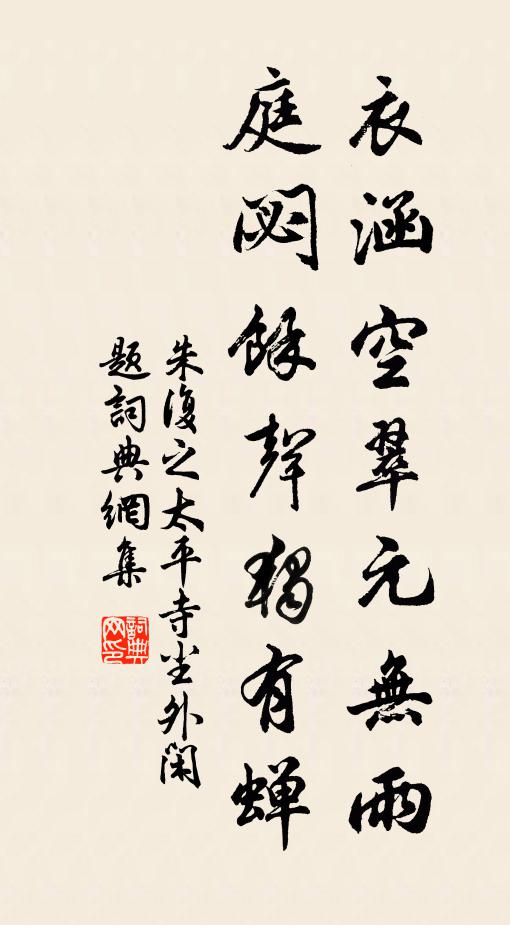 衣涵空翠元無雨
庭閟餘聲獨有蟬
朱復之太平寺坐外閑
題詞典網集
詞典網印